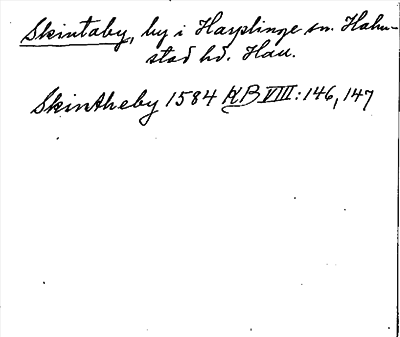 Skintaby, by i Harplinge sn. Halm-
stad hd. Hall.
Skintheby 1584 KB VIII: 146, 147